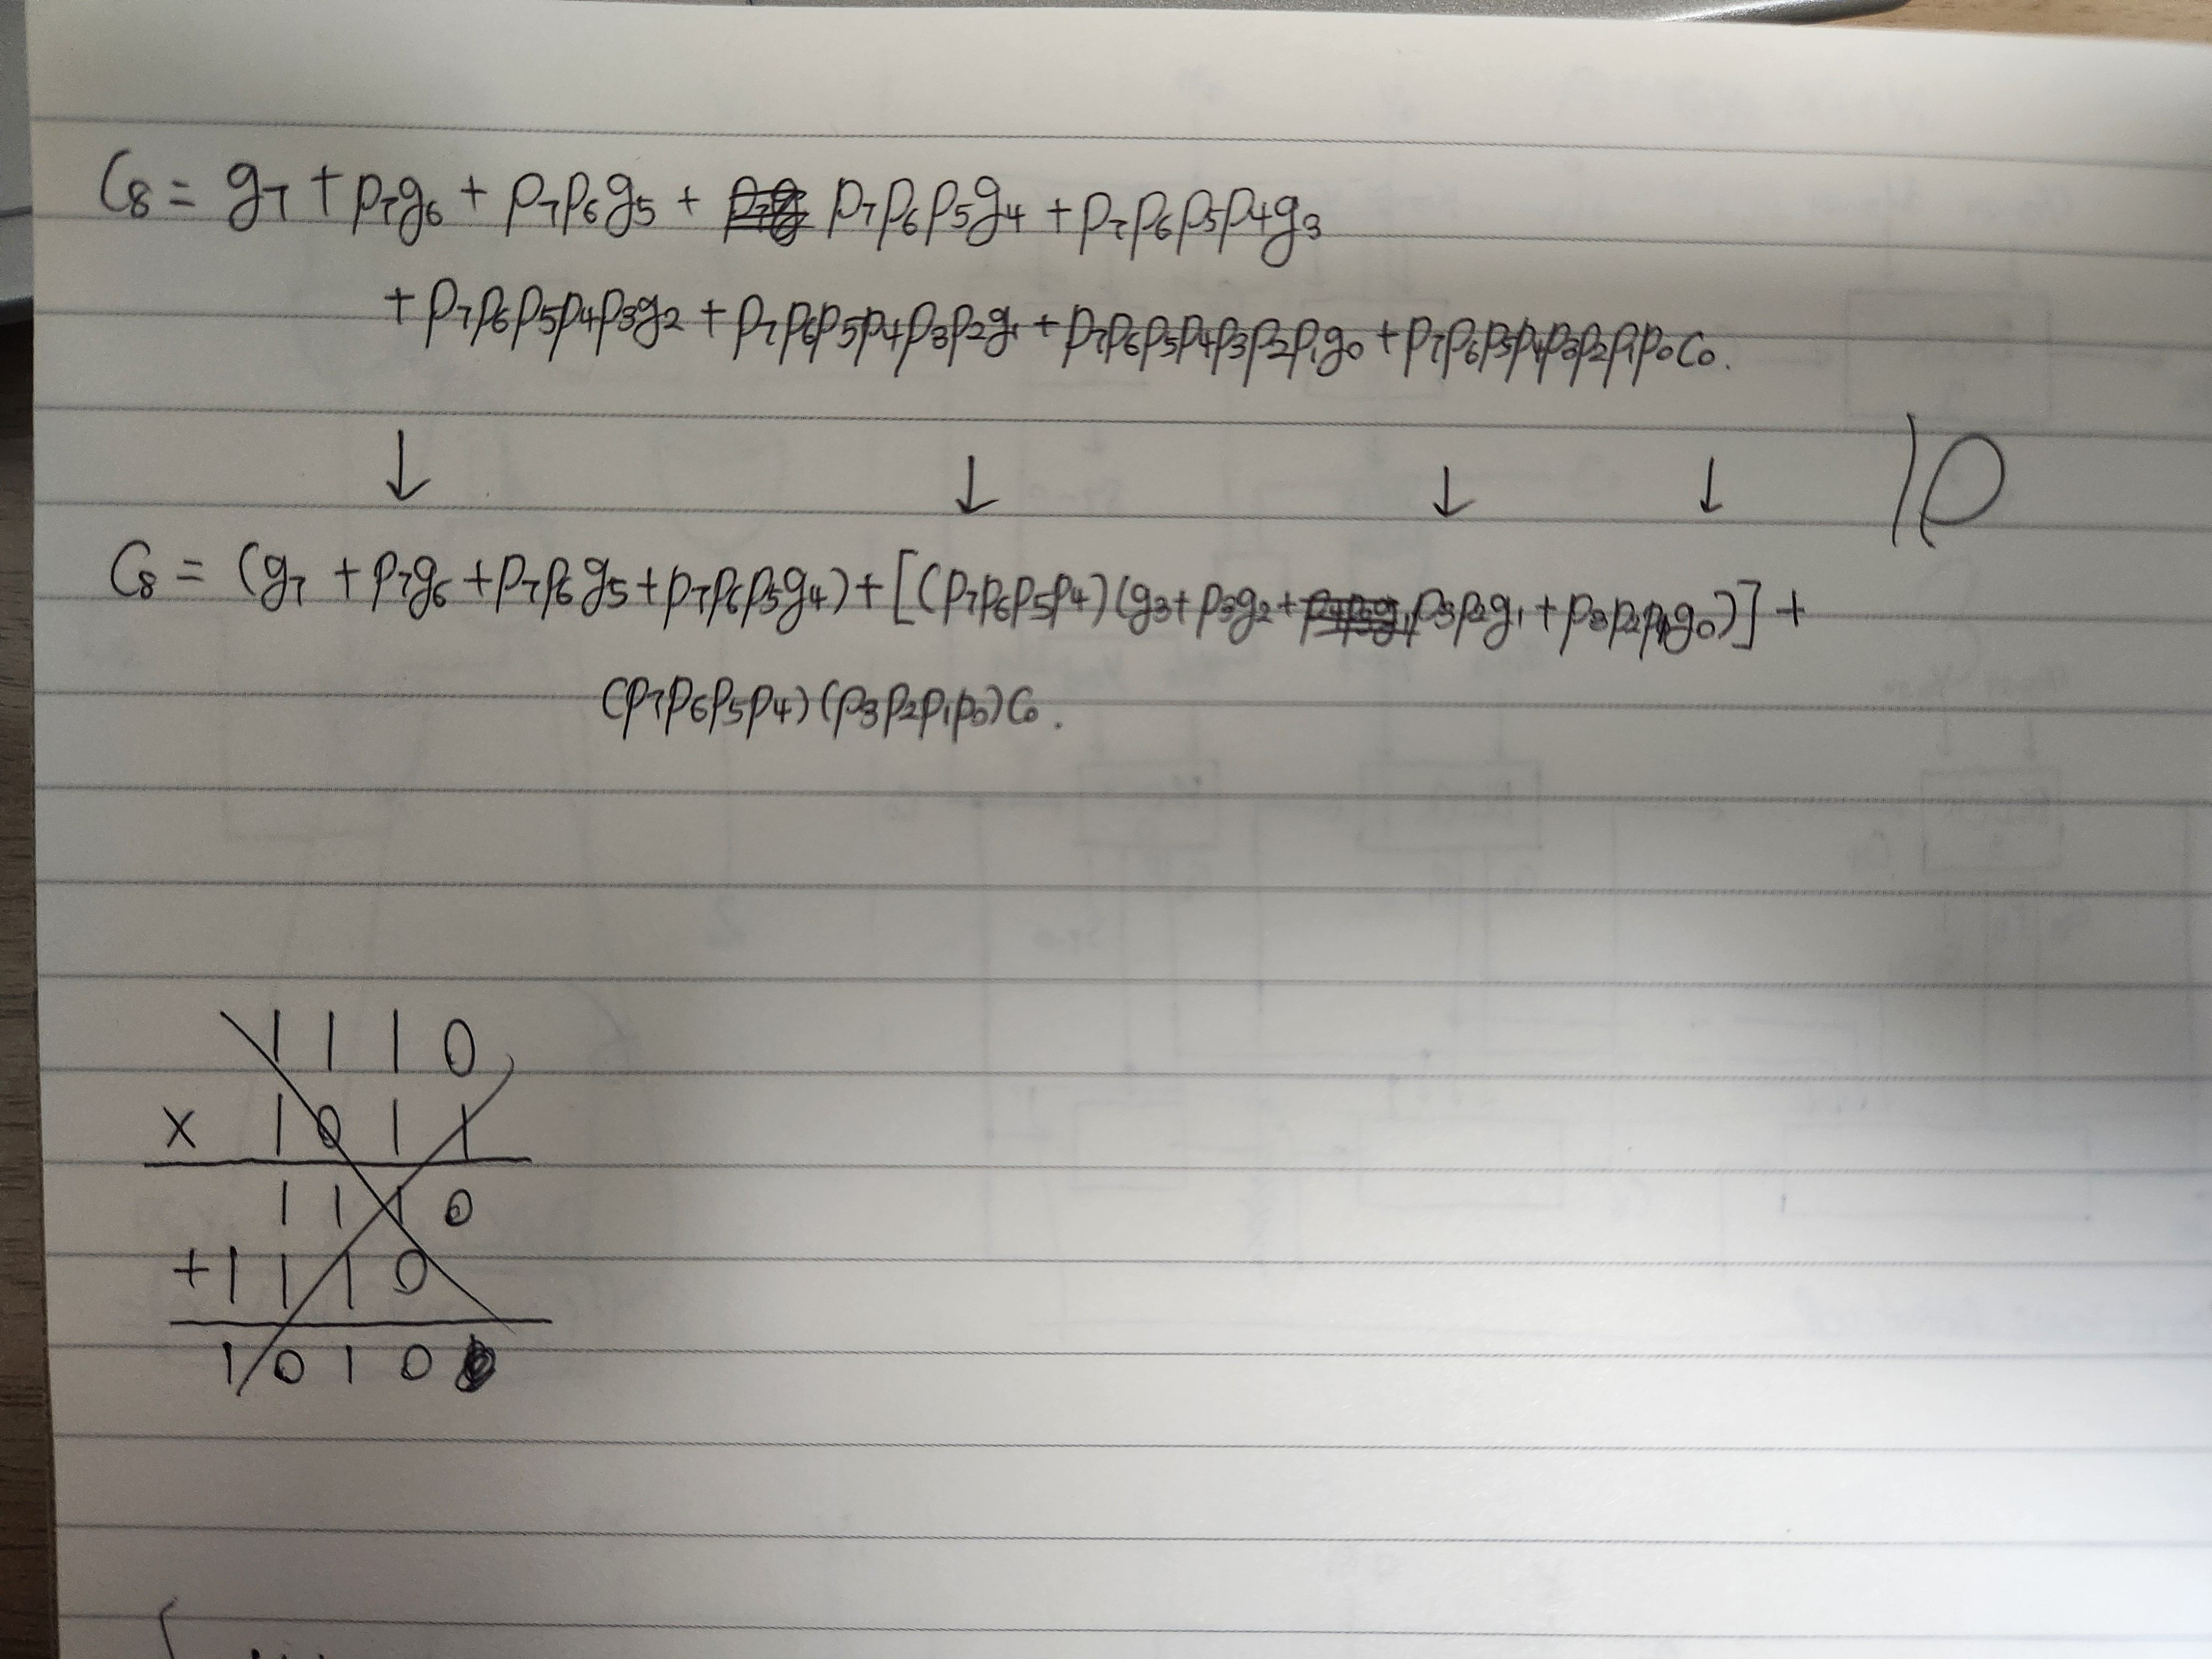 C8 = g7 + p7g6 + p7p6g5 + p7p6p5g4 + p7p6p5p4g3
+ p7p6p5p4p3g2 + p7p6p5p4p3p2g1 + p7p6p5p4p3p2p1g0 + p7p6p5p4p3p2p1p0C0.
↓ ↓ ↓ ↓
10
C8 = (g7 + p7g6 + p7p6g5 + p7p6p5g4) + [(p7p6p5p4)(g3 + p3g2 + p3p2g1 + p3p2p1g0)] +
(p7p6p5p4)(p3p2p1p0)C0.
1 1 1 0
x 1 0 1 1
1 1 1 0
+ 1 1 1 0
1 0 1 0